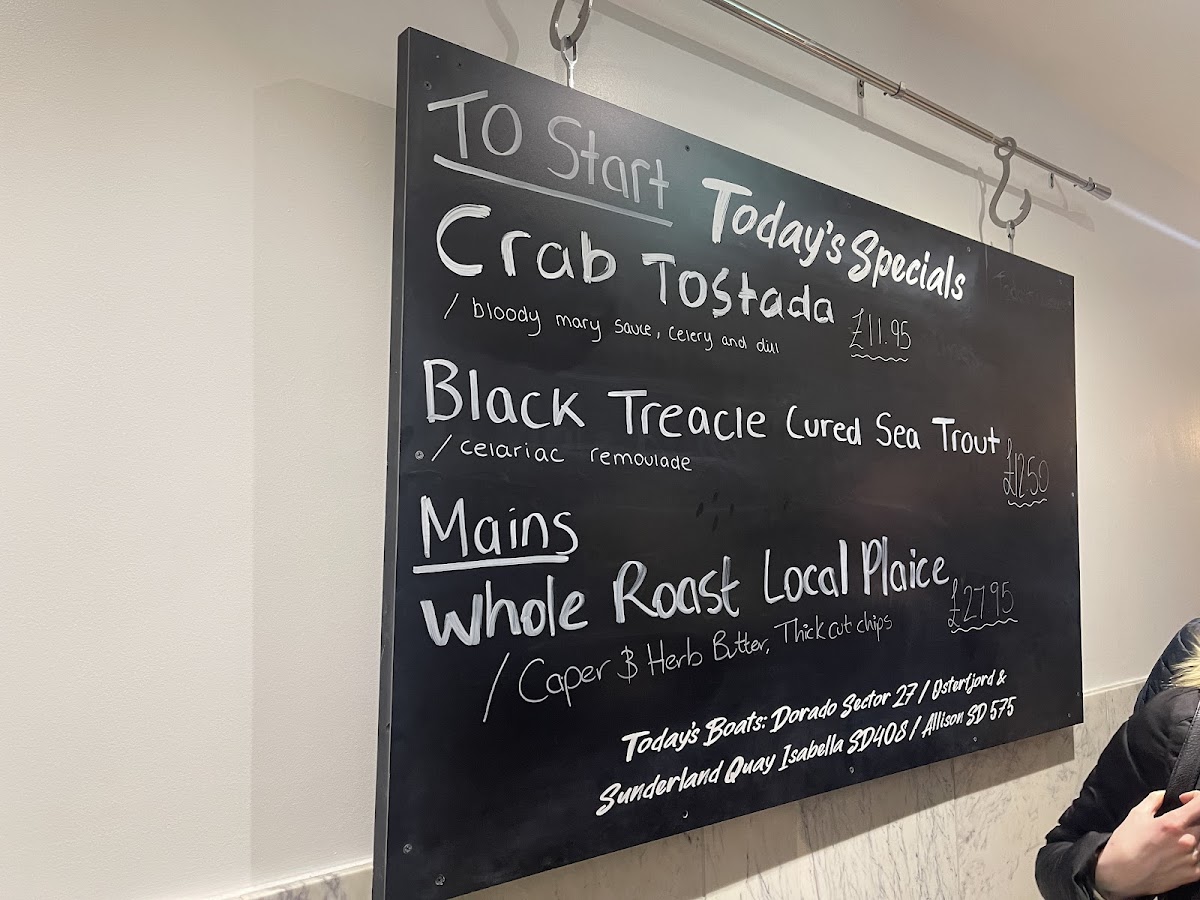 To Start
Today's Specials
Crab Tostada
/ bloody mary sauce, celery and dill £11.95
Black Treacle Cured Sea Trout
/ celariac remoulade £12.50
Mains
Whole Roast Local Plaice £27.95
/ Caper & Herb Butter, Thick cut chips
Today's Boats: Dorado Sector 27 / Osterfjord &
Sunderland Quay Isabella SD408 / Allison SD 575